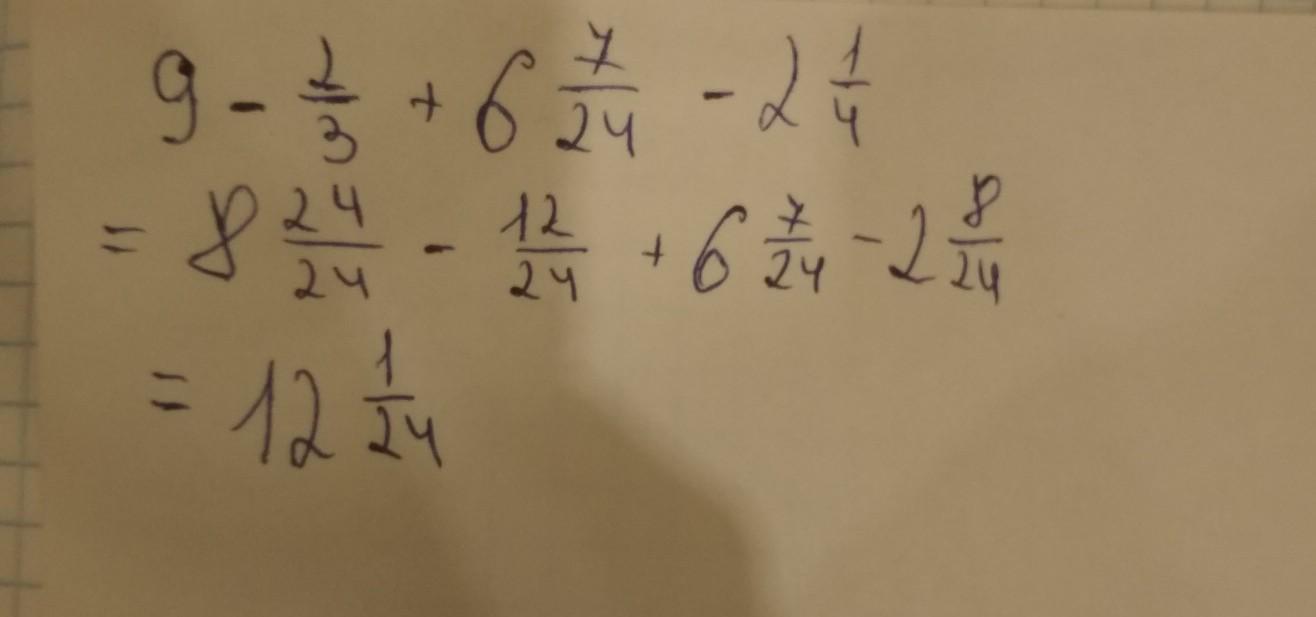 9 - 2/3 + 6 7/24 - 2 1/4
= 8 24/24 - 12/24 + 6 7/24 - 2 8/24
= 12 1/24